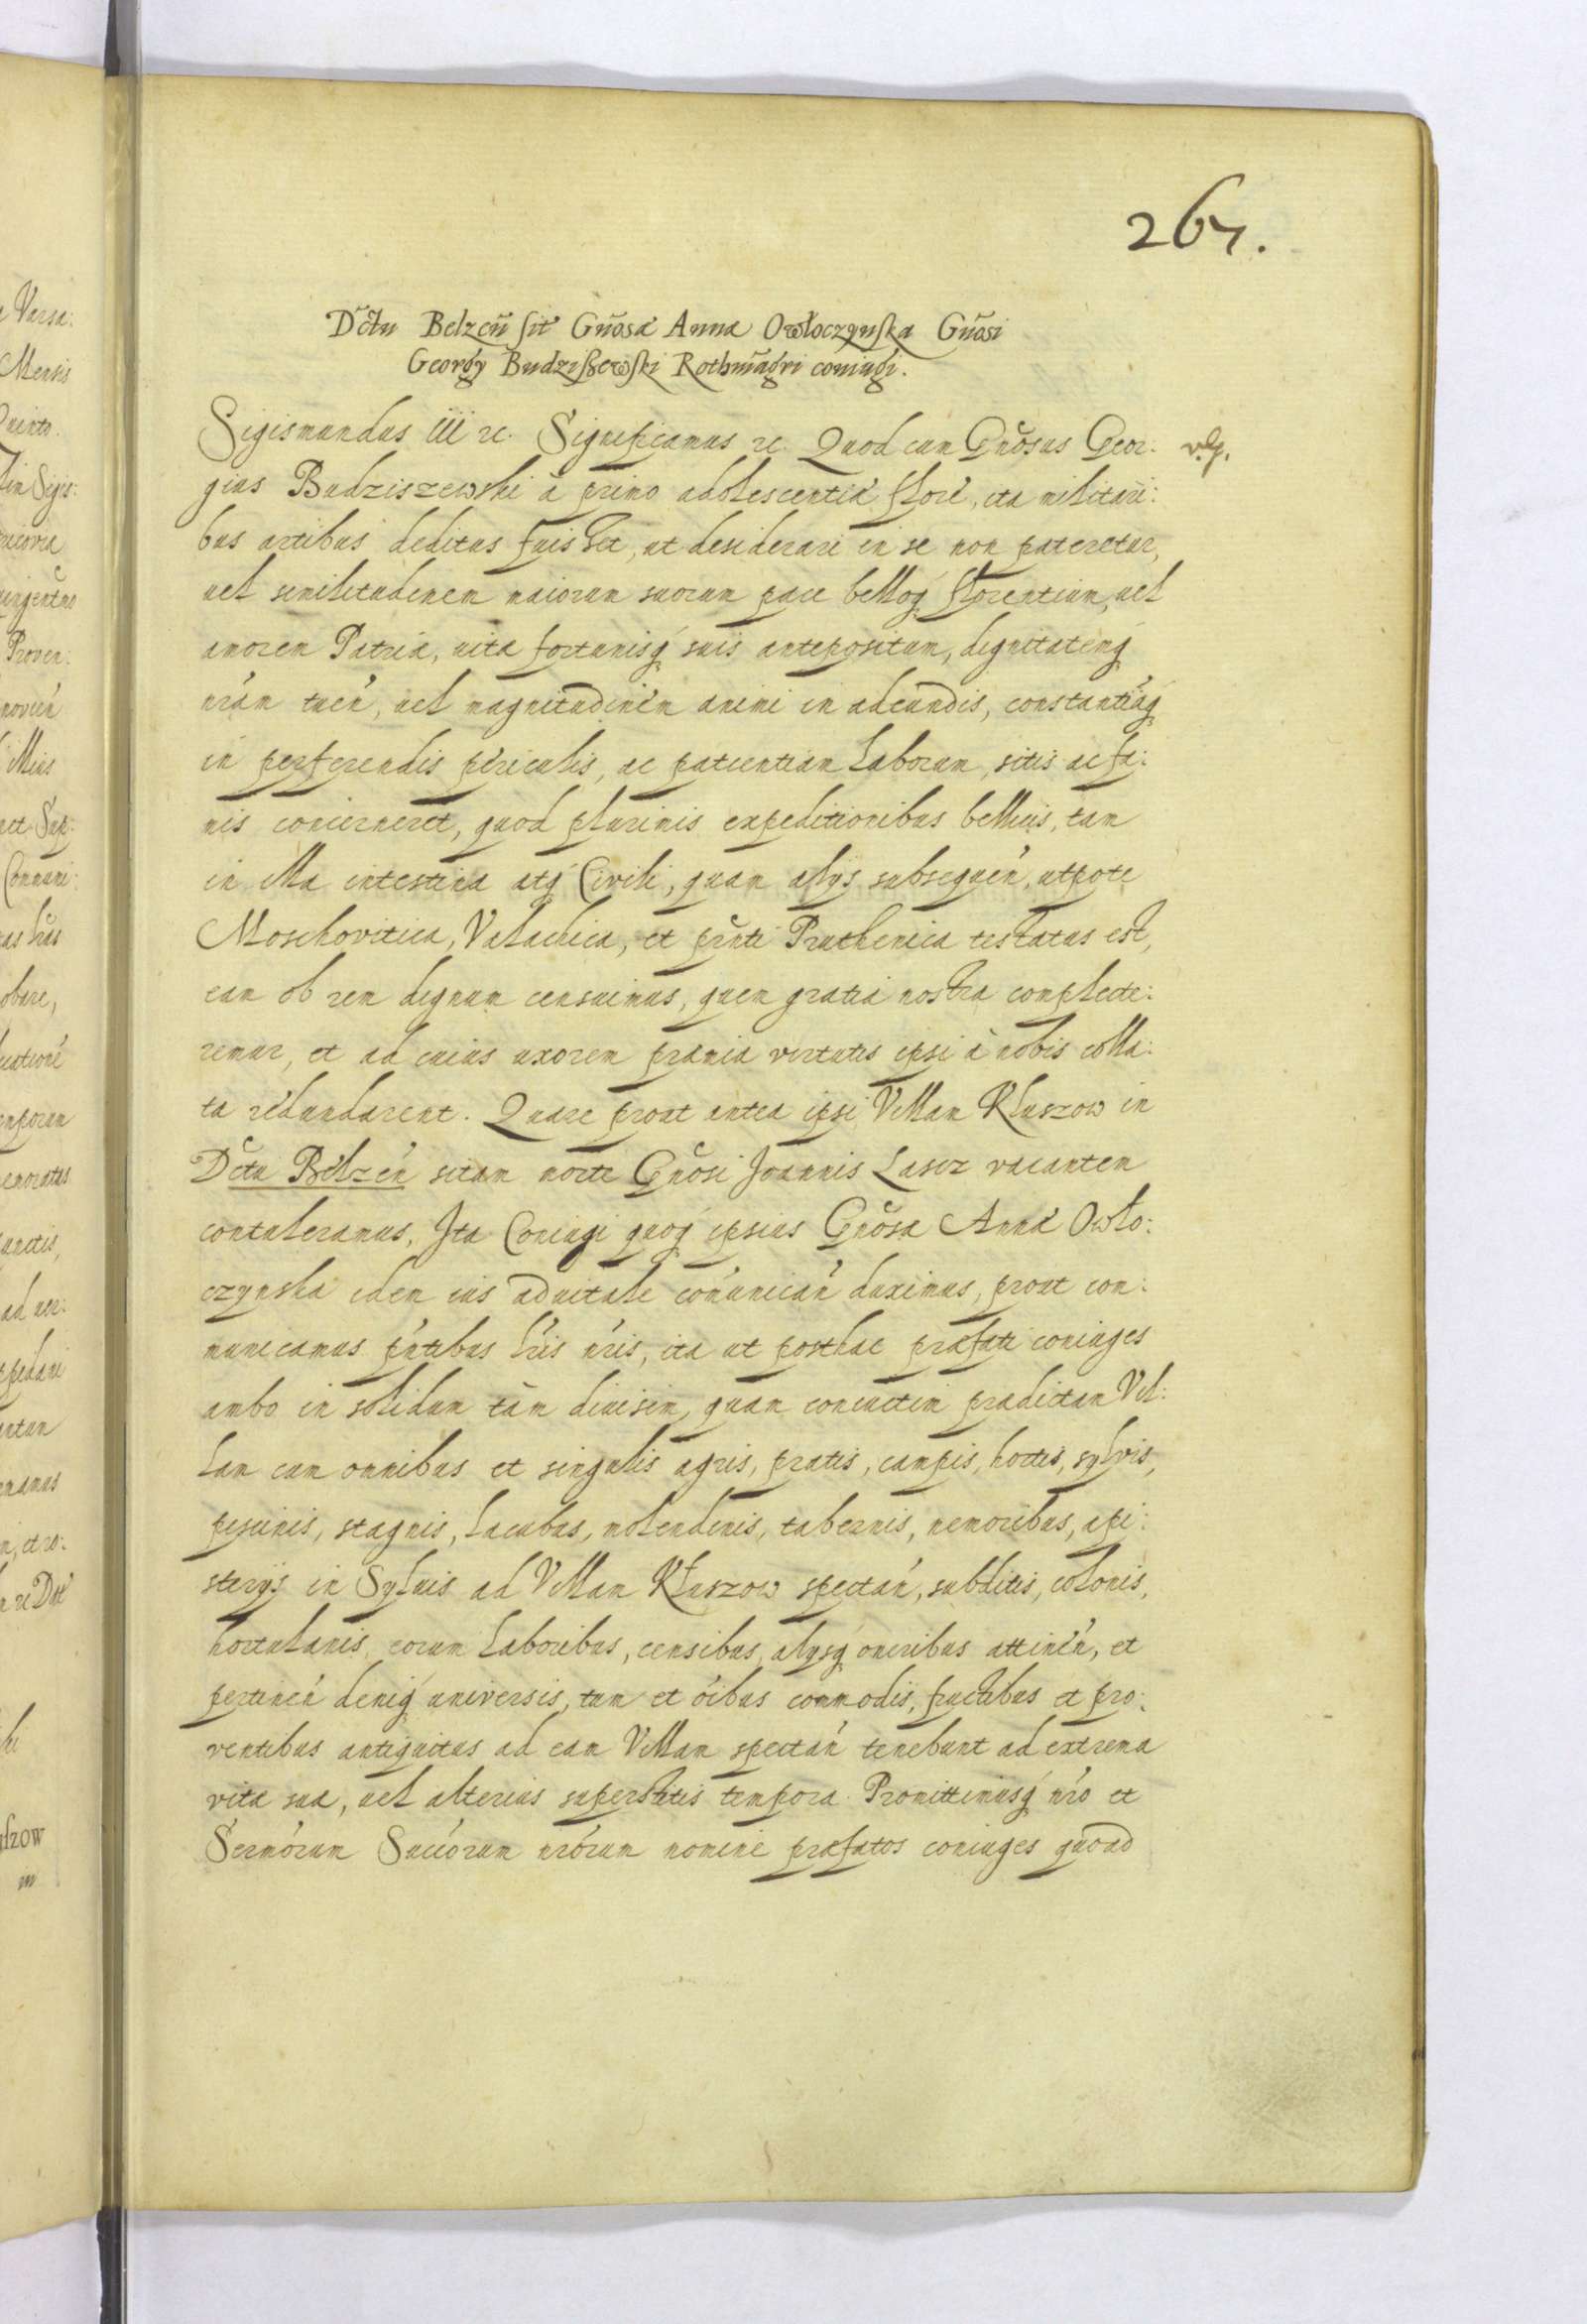 267.
Dctu Belzeń sit Gnosæ Annæ Owłoczynska Gnosi
Georgy Budziszewski Rothmagri coniugi.
Sigismundus III rc. Significamus rc. Quod cum Gnosus Geor:
gius Budziszewski à primo adolescentiæ flore, ita militari:
bus artibus deditus fuisset, ut desiderari in se non pateretur,
uel similitudinem maiorum suorum pace belloq́ florentium, uel
amorem Patriæ, uita fortunisq́ suis antepositum, dignitatemq́
nrám tueń, uel magnitudinem animi in adeundis, constantiaq́
in perferendis periculis, ac patientiam laborum, sitis ac fa:
mis concerneret, quod plurimis expeditionibus bellicis, tam
in illa intestina atq́ Civili, quam alys subsequeń, utpote
Moschovitica, Valachica, et prnti Pruthenica testatus est,
eam ob rem dignum censuimus, quem gratia nostra complecte:
remur, et ad cuius uxorem præmia virtutis ipsi à nobis colla:
ta redundarent. Quare prout antea ipsi Villam Kłuszow in
Dctu Belzeń sitam morte Gnosi Joannis Lascz vacantem
contuleramus, Ita Coniugi quoq́ ipsius Gnosæ Annæ Owło:
czynska idem ius aduitale comunicań duximus, prout com:
municamus pntibus lris nris, ita ut posthac præfati coniuges
ambo in solidum tam diuisim, quam coniunctim prædictam Vil:
lam cum omnibus et singulis agris, pratis, campis, hortis, sylvis,
piscinis, stagnis, lacubus, molendinis, tabernis, nemoribus, api:
sterys in Syluis ad Villam Kłuszow spectań, subditis, colonis,
hortulanis, eorum laboribus, censibus, alysq́ oneribus attineń, et
pertineń deniq́ universis, tum et oibus commodis, fructibus et pro:
ventibus antiquitus ad eam Villam spectań tenebunt ad extrema
vitæ suæ, uel alterius superstitis tempora. Promittimusq́ nro et
Sermorum Succorum nrorum nomine præfatos coniuges quoad